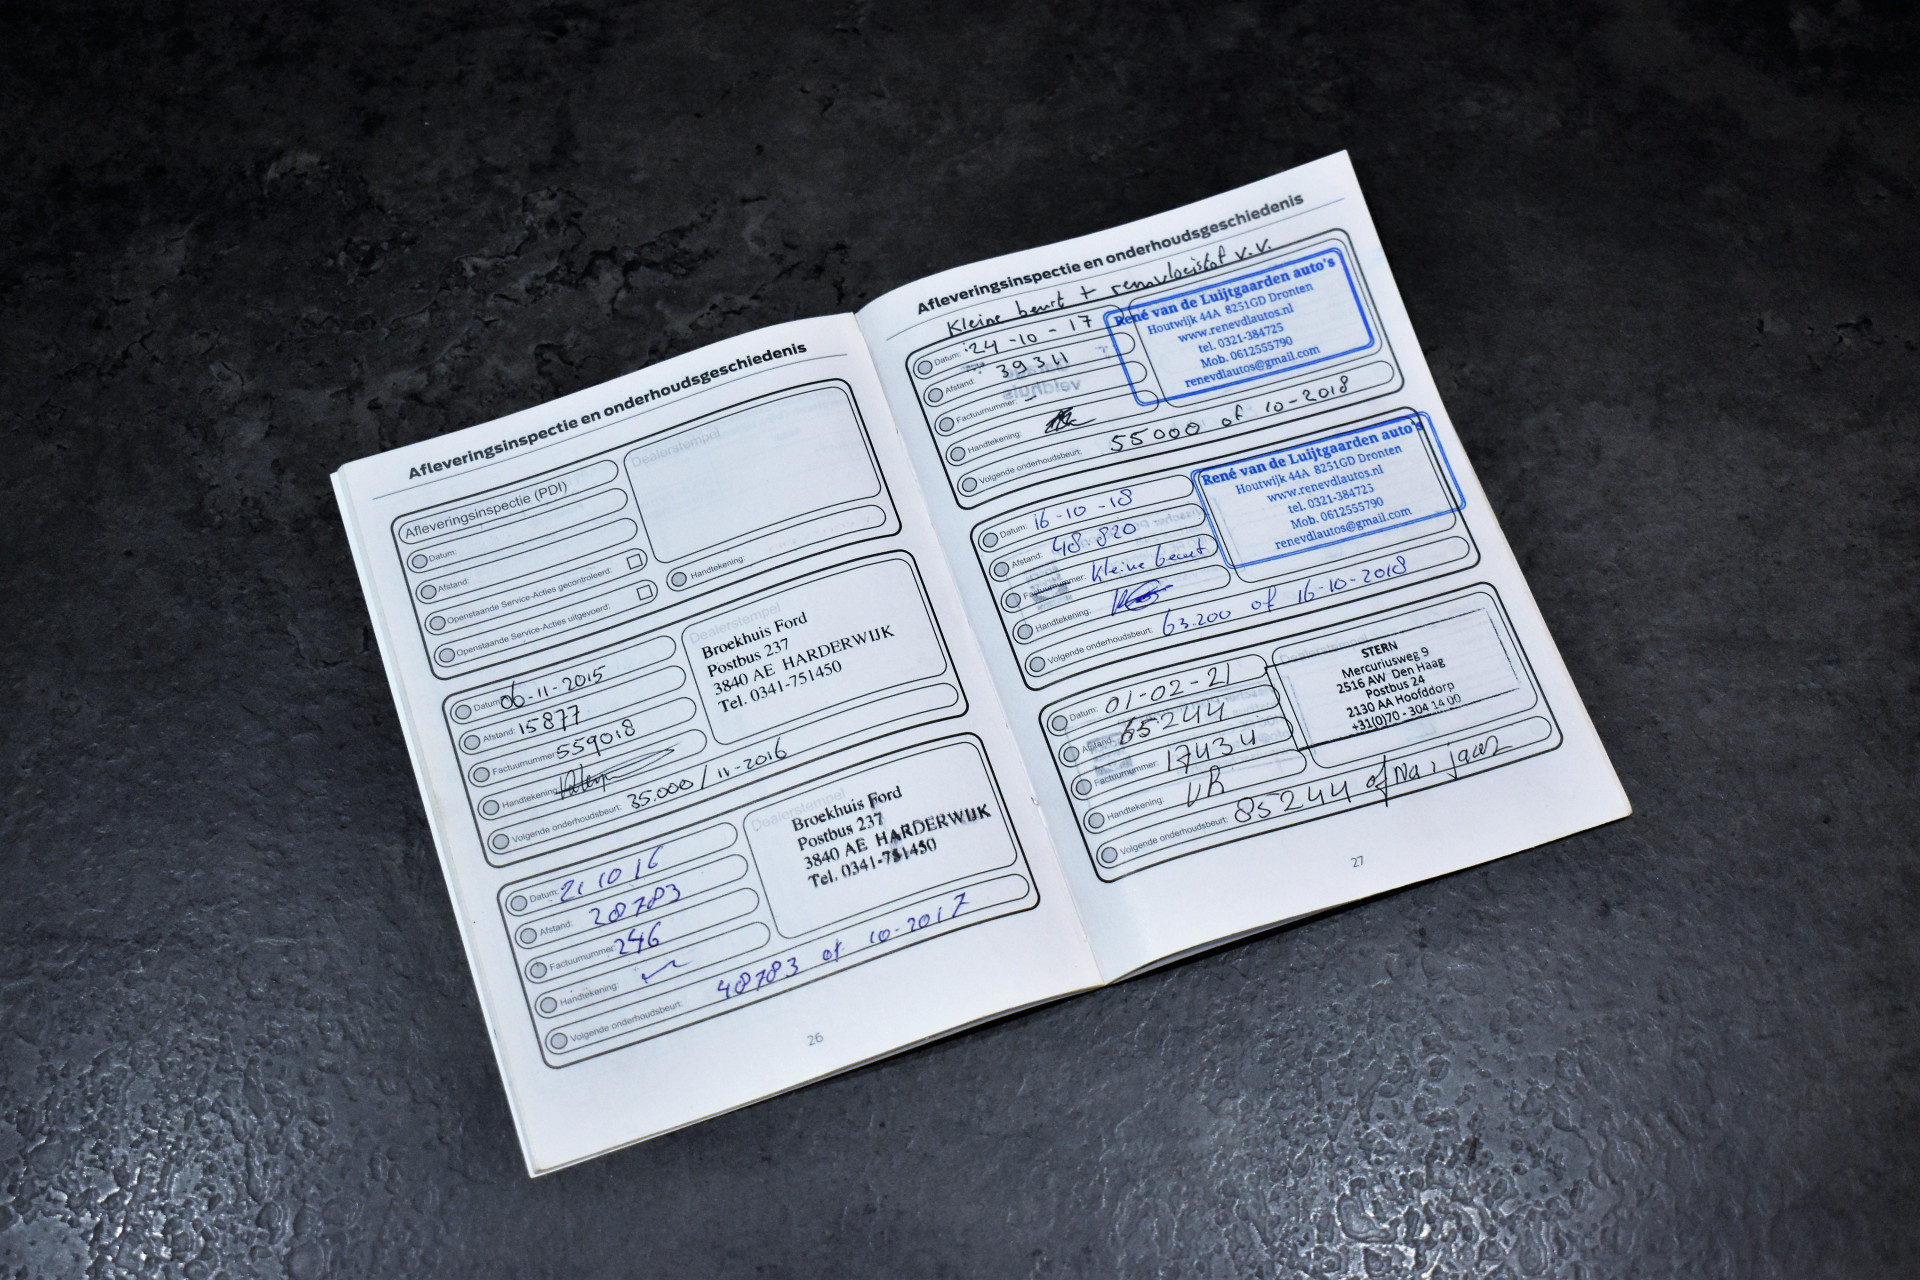 Afleveringsinspectie en onderhoudsgeschiedenis
Afleveringsinspectie (PDI)
Datum:
Afstand:
Openstaande Service-Acties gecontroleerd:
Openstaande Service-Acties uitgevoerd:
Dealerstempel
Handtekening:
Datum: 06-11-2015
Afstand: 15877
Factuurnummer: 559018
Handtekening:
Volgende onderhoudsbeurt: 35.000 / 11-2016
Dealerstempel
Broekhuis Ford
Postbus 237
3840 AE HARDERWIJK
Tel. 0341-751450
Datum: 21 10 16
Afstand: 28783
Factuurnummer: 246
Handtekening:
Volgende onderhoudsbeurt: 48783 of 10-2017
Dealerstempel
Broekhuis Ford
Postbus 237
3840 AE HARDERWIJK
Tel. 0341-751450
26
Afleveringsinspectie en onderhoudsgeschiedenis
Kleine beurt + remvloeistof v.v.
Datum: 24-10-17
Afstand: 39311
Factuurnummer: -
Handtekening:
Volgende onderhoudsbeurt: 55000 of 10-2018
René van de Luijtgaarden auto's
Houtwijk 44A 8251GD Dronten
www.renevdlautos.nl
tel. 0321-384725
Mob. 0612555790
renevdlautos@gmail.com
Datum: 16-10-18
Afstand: 48820
Factuurnummer: Kleine beurt
Handtekening:
Volgende onderhoudsbeurt: 63.200 of 16-10-2018
René van de Luijtgaarden auto's
Houtwijk 44A 8251GD Dronten
www.renevdlautos.nl
tel. 0321-384725
Mob. 0612555790
renevdlautos@gmail.com
Datum: 01-02-21
Afstand: 65244
Factuurnummer: 17434
Handtekening: VR
Volgende onderhoudsbeurt: 85244 of Na 1 jaar
Dealerstempel
STERN
Mercuriusweg 9
2516 AW Den Haag
Postbus 24
2130 AA Hoofddorp
+31(0)70 - 304 14 00
27